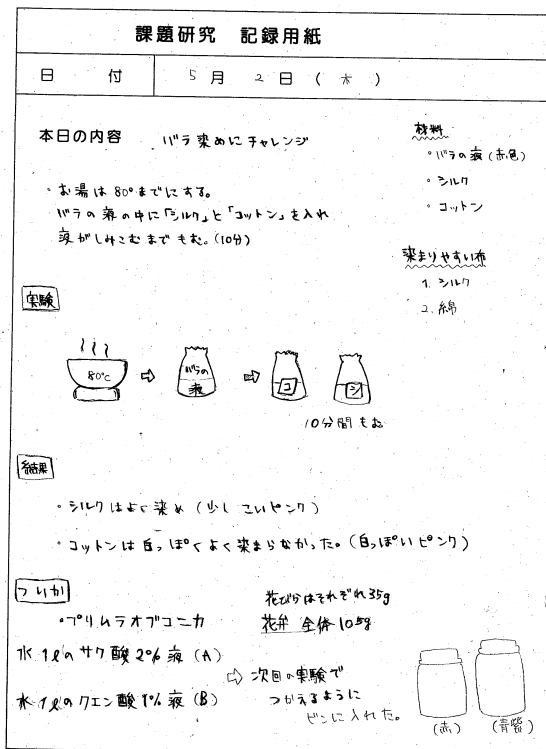 課題研究 記録用紙
日 付 5月 2日 (木)
本日の内容 バラ染めにチャレンジ
・お湯は80°までにする。
バラの液の中に「シルク」と「コットン」を入れ
液がしみこむまでもむ。(10分)
材料
・バラの液(赤色)
・シルク
・コットン
染まりやすい布
1. シルク
2. 綿
実験
80℃ ⇨ バラの液 ⇨ コ シ
10分間もむ
結果
・シルクはよく染め(少しこいピンク)
・コットンは白っぽくよく染まらなかった。(白っぽいピンク)
ついか
・プリムラオブコニカ
水1ℓのサク酸2%液(A)
水1ℓのクエン酸1%液(B)
花びらはそれぞれ35g
花弁 全体105g
⇨ 次回の実験で
つかえるように
ビンに入れた。
(赤) (青紫)